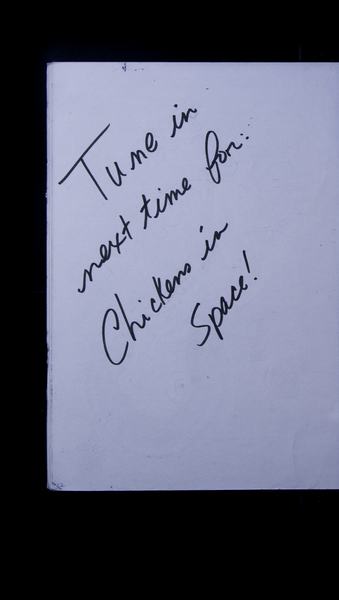 Tune in
next time for:
Chickens in
Space!